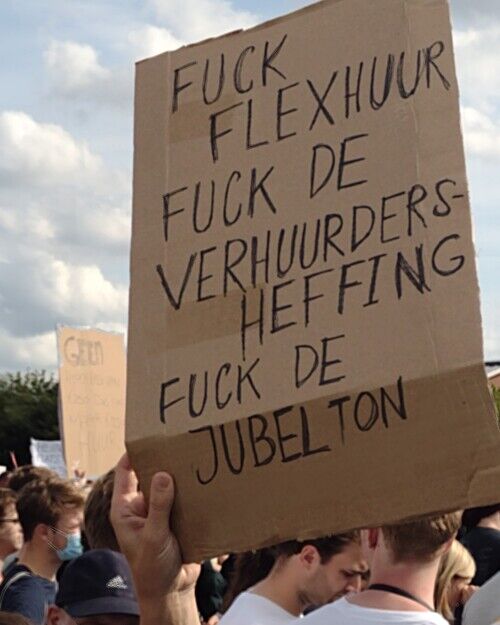 FUCK
FLEXHUUR
FUCK DE
VERHUURDERS-
HEFFING
FUCK DE
JUBELTON
GEEN
HUUR